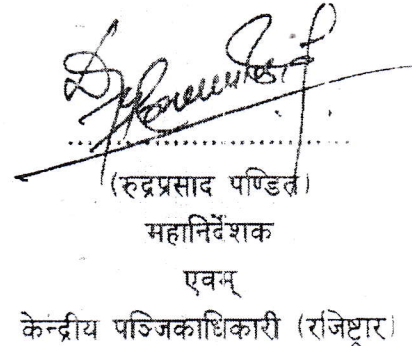 (रुद्रप्रसाद पण्डित)
महानिर्देशक
एवम्
केन्द्रीय पञ्जिकाधिकारी (रजिष्ट्रार)